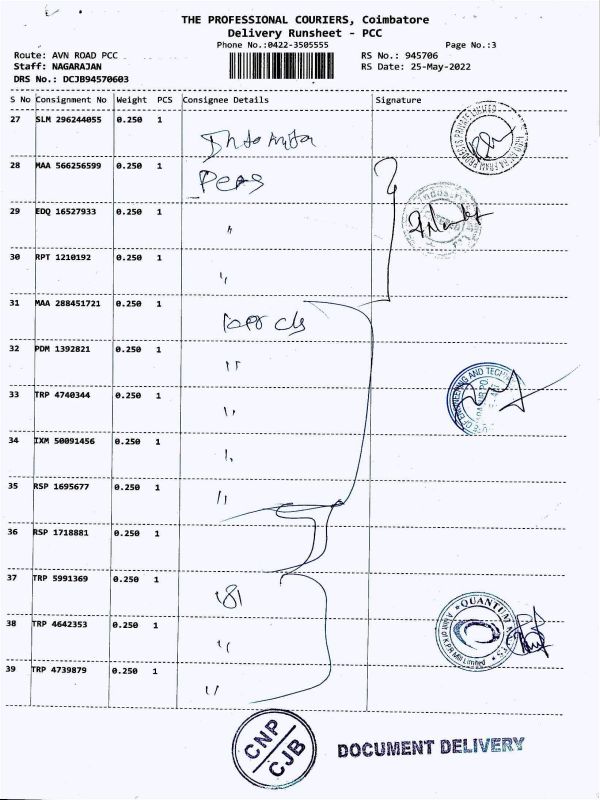 THE PROFESSIONAL COURIERS, Coimbatore
Delivery Runsheet - PCC
Phone No.:0422-3505555
Page No.:3
Route: AVN ROAD PCC
RS No.: 945706
Staff: NAGARAJAN
RS Date: 25-May-2022
DRS No.: DCJB94570603
S No Consignment No Weight PCS Consignee Details Signature
27 SLM 296244055 0.250 1
28 MAA 566256599 0.250 1
29 EDQ 16527933 0.250 1 "
30 RPT 1210192 0.250 1 "
31 MAA 288451721 0.250 1
32 PDM 1392821 0.250 1 "
33 TRP 4740344 0.250 1 "
34 IXM 50091456 0.250 1 "
35 RSP 1695677 0.250 1 "
36 RSP 1718881 0.250 1
37 TRP 5991369 0.250 1
38 TRP 4642353 0.250 1 "
39 TRP 4739879 0.250 1 "
QUANTUM
A unit of K.P.R Mill Limited
CNP
CJB
DOCUMENT DELIVERY